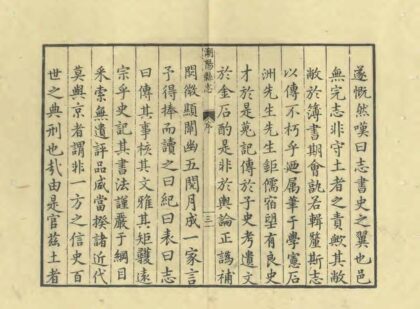 遂慨然嘆曰志書史之翼也邑
無完志非守土者之責歟其敝
敝於簿書期會訑若輯釐斯志
以傳不朽乎迺属筆于學憲石
洲先生先生鉅儒宿望有良史
才於是蒐記傳於子史考遺文
於金石酌是非於輿論正譌補
潮陽縣志 序 三
闕微顯闡幽五閱月成一家言
予得捧而讀之曰紀曰表曰志
曰傳其事核其文雅其矩矱遠
宗乎史記其書法謹嚴于綱目
釆索無遺評品咸當揆諸近代
莫與京者謂非一方之信史百
世之典刑也㢤由是官茲土者